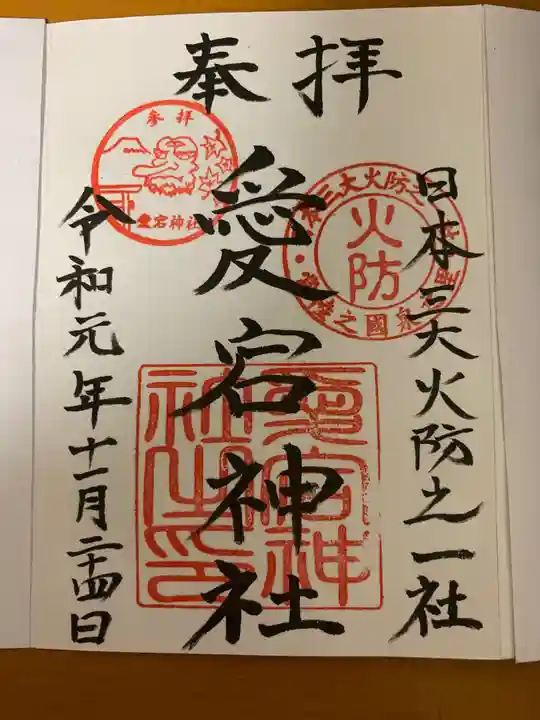 奉拝
日本三大火防之一社
愛宕神社
令和元年十一月二十四日
参拝
愛宕神社
火防
愛宕神社之印